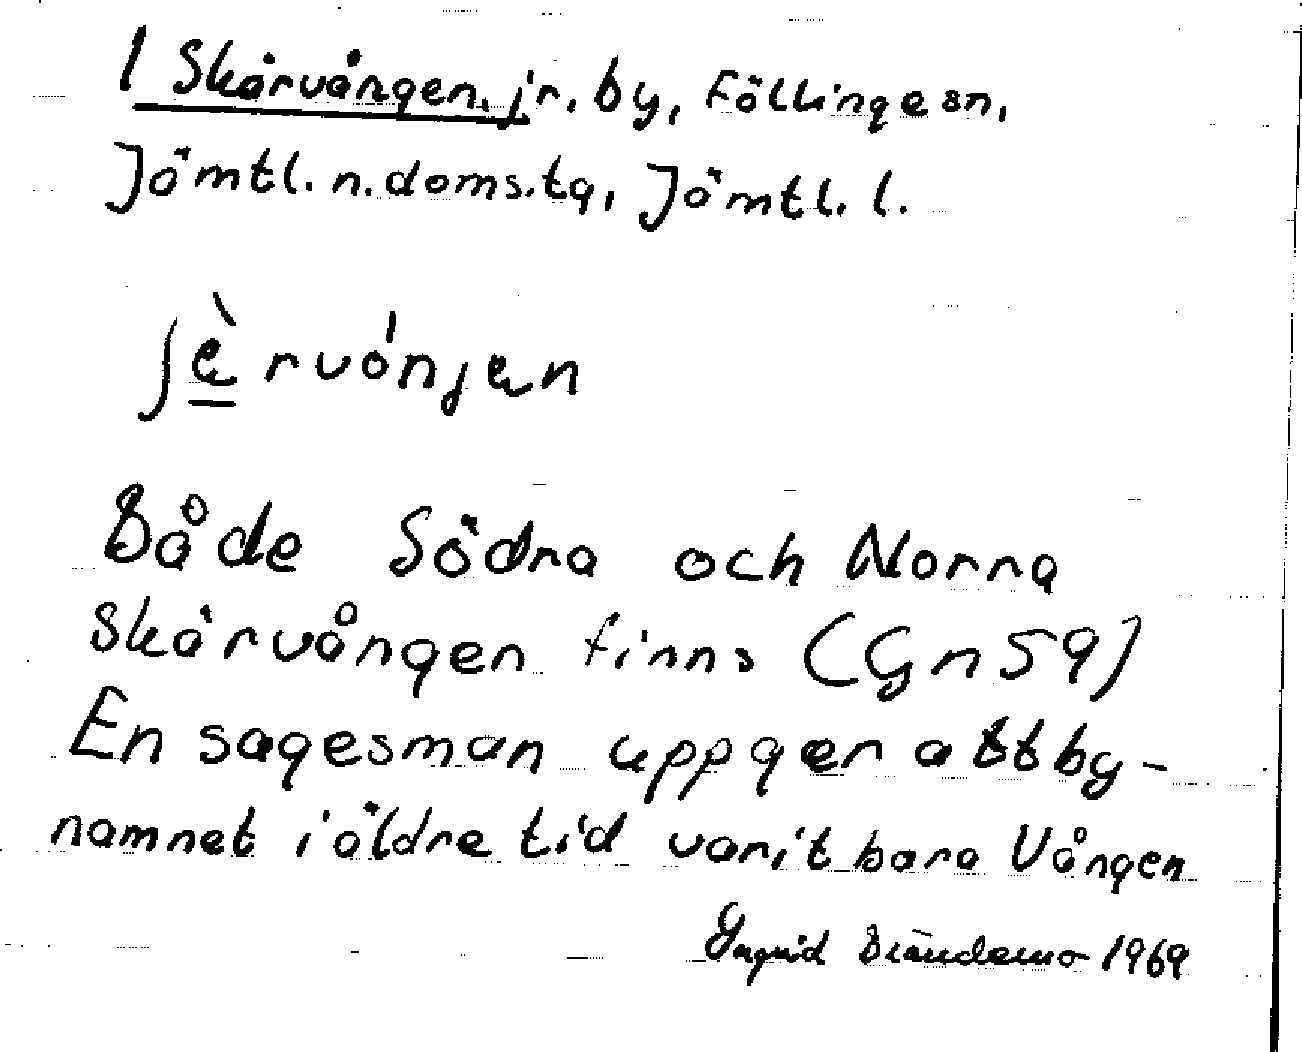 1 Skärvången, jr. by, Föllinge sn,
Jämtl. n. doms.tg, Jämtl. l.
ʃè̱rvónjen
Både Södra och Norra
Skärvången finns (Gn59)
En sagesman uppger att by-
namnet i äldre tid varit bara Vången
Ingrid Brändemo 1969